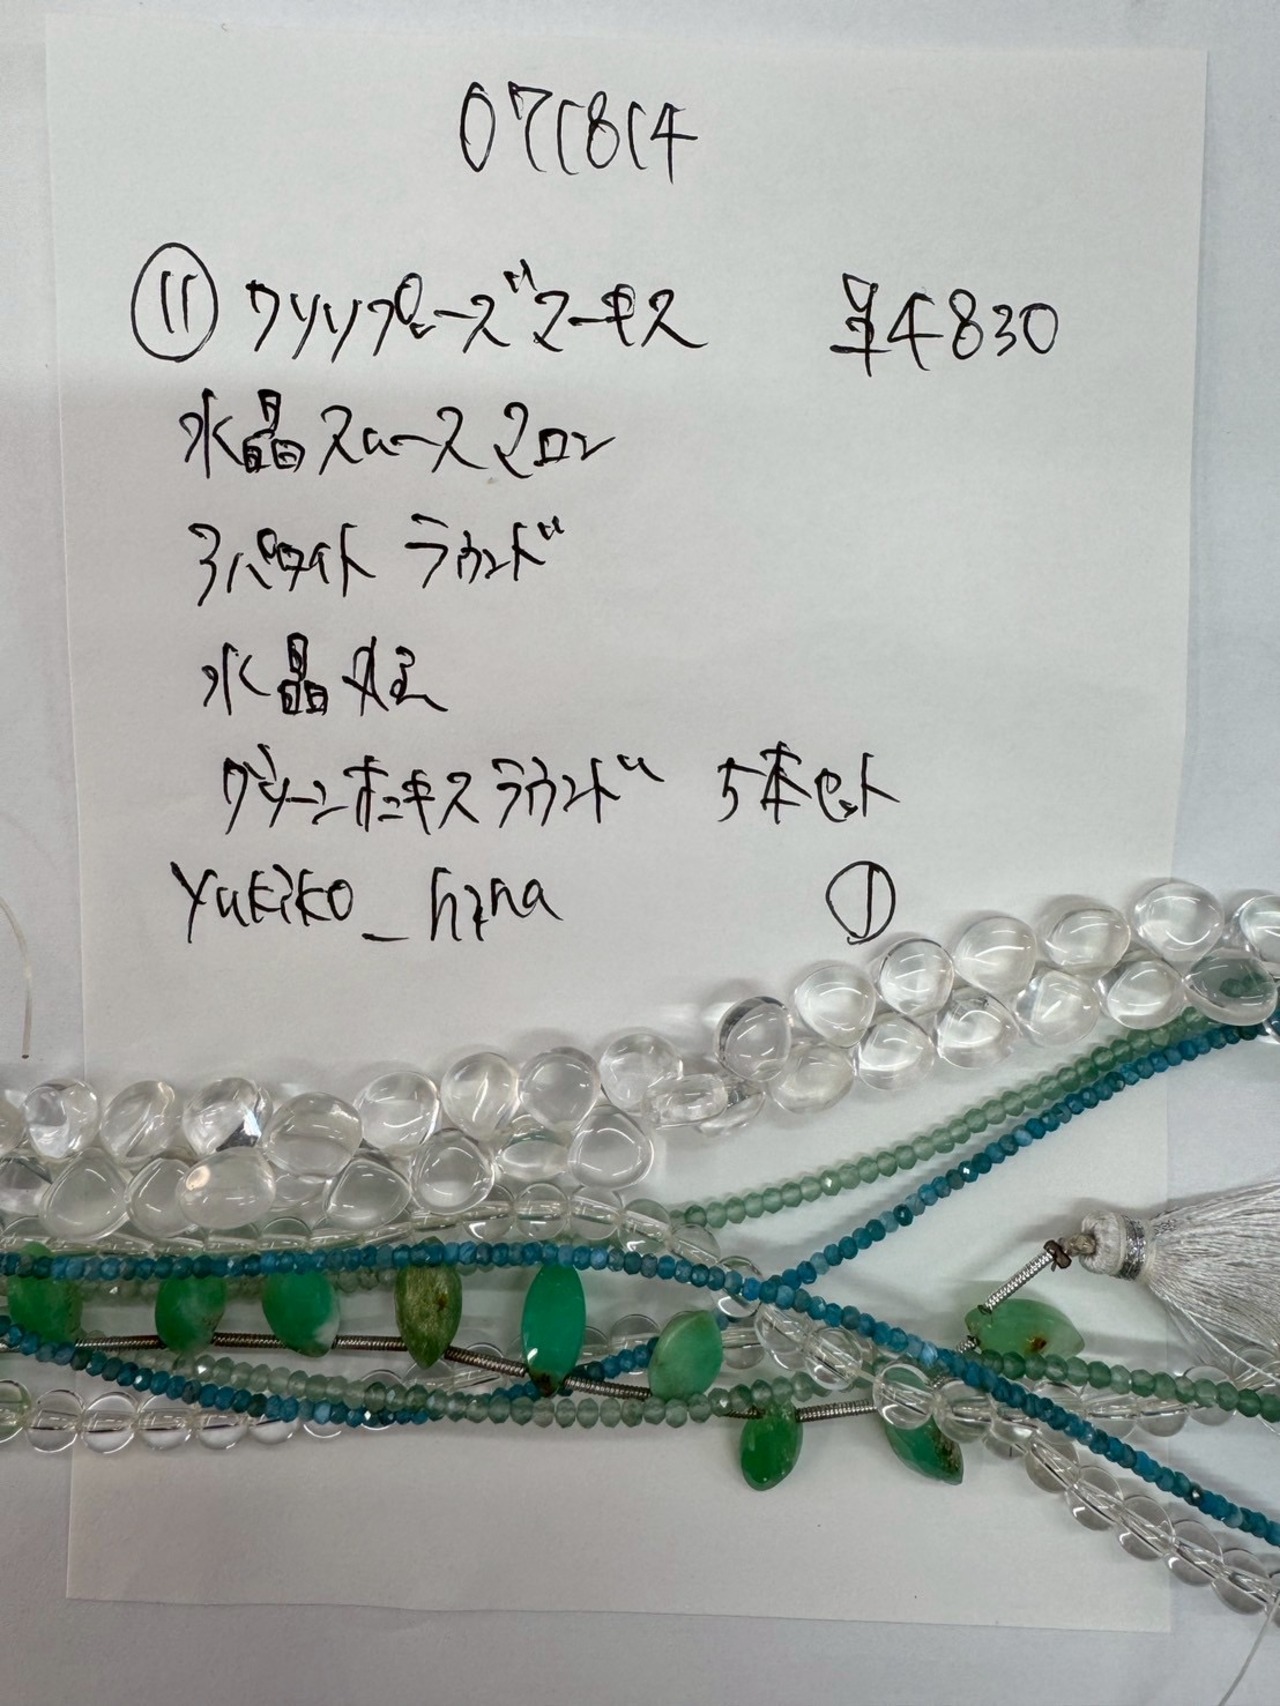 071814
⑪ クリソプレーズマーキス ¥4830
水晶スムースマロン
アパタイト ラウンド
水晶丸玉
グリーンオニキスラウンド 5本セット
Yukiko_hina ①